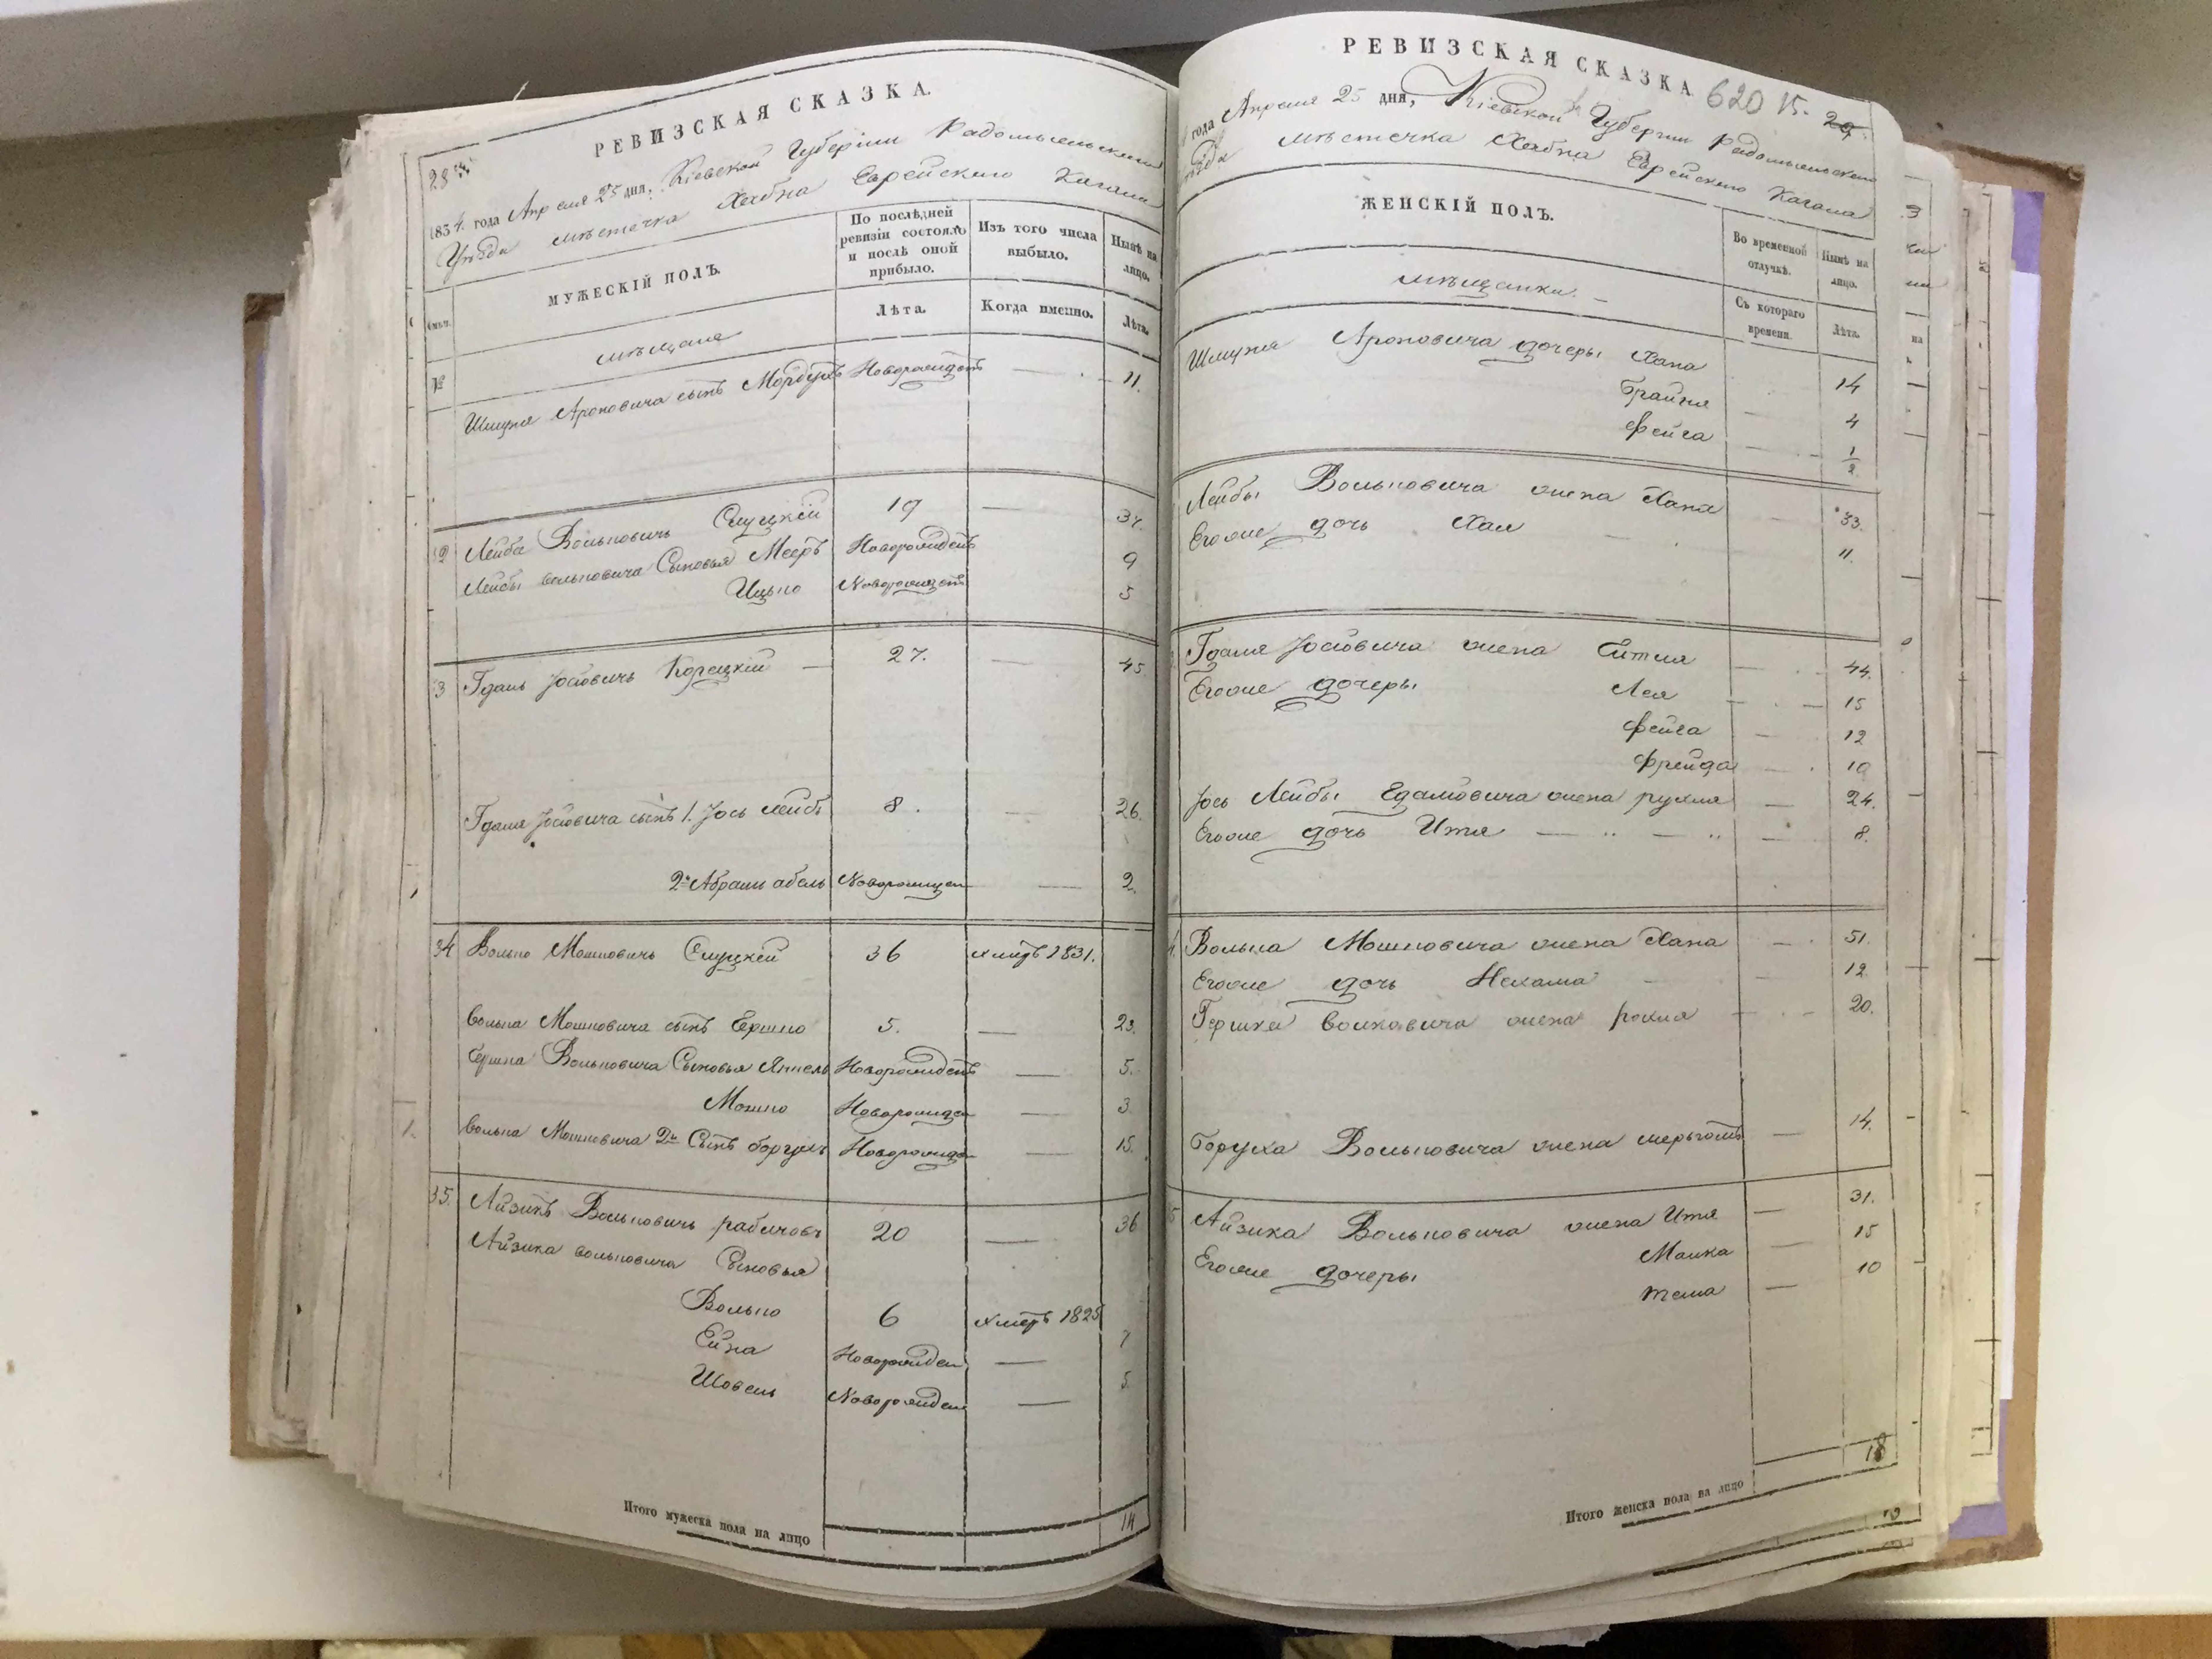 РЕВИЗСКАЯ СКАЗКА.
28
1834. года Апреля 25 дня, Кіевской Губерніи Радомысльскаго
Уезда местечка Хабна Еврейского Кагала
МУЖЕСКІЙ ПОЛЪ.
По послѣдней ревизіи состояло и послѣ оной прибыло.
Изъ того числа выбыло.
Нынѣ на лицо.
Лѣта.
Когда именно.
Лѣта.
мѣщане
Шмуля Ароновича сынъ Мордухъ Новорожденъ — 11.
Лейба Вольковичь Слуцкій 19 — 34.
Лейбы Вольковича Сыновья Мееръ Новорожденъ 9
Ицько Новорожденъ 5
Гдаль Йосіовичь Корецкій — 27. — 45
Гдаля Йосіовича сынъ 1. Йось Лейбъ 8. — 26.
2й Абрамъ абель Новорожден — 2.
34 Волько Мошковичь Слуцкій 36 умеръ 1831.
Волька Мошковича сынъ Гершко 5. — 23.
Гершка Вольковича Сыновья Янкель Новорожденъ — 5.
Мошко Новорожден — 3
Волька Мошковича 2й Сынъ борухъ Новорожден — 15.
35. Айзикъ Вольковичь рабиновъ 20 — 36
Айзика вольковича Сыновья
Волько 6 умеръ 1825
Ейна Новорожден — 7
Шовель Новорожден — 5.
Итого мужеска пола на лицо 14
РЕВИЗСКАЯ СКАЗКА 620 15. 29.
года Апреля 25 дня, Кіевской Губерніи Радомысльскаго
местечка Хабна Еврейского Кагала
ЖЕНСКІЙ ПОЛЪ.
Во временной отлучкѣ.
Нынѣ на лицо.
Съ котораго времени.
Лѣта.
мѣщанки. —
Шмуля Ароновича дочеры Хана 14
Брайна — 4
Фейга — 1/2
Лейбы Вольковича жена Хана — 33.
Егоже дочь Хая — 11.
Гдаля Йосіовича жена Ситля — 44.
Егоже дочеры Лея — 15
Фейга — 12
Фрейда — 10
Йось Лейбы Гдаліовича жена рухля — 24.
Егоже дочь Итя — 8.
Волька Мошковича жена Хана — 51.
Егоже дочь Нехама — 12
Гершка Волковича жена рохля — 20.
Боруха Вольковича жена мерьгомъ — 14.
Айзика Вольковича жена Итя — 31.
Егоже дочеры Малка — 15
тема — 10
Итого женска пола на лицо 18